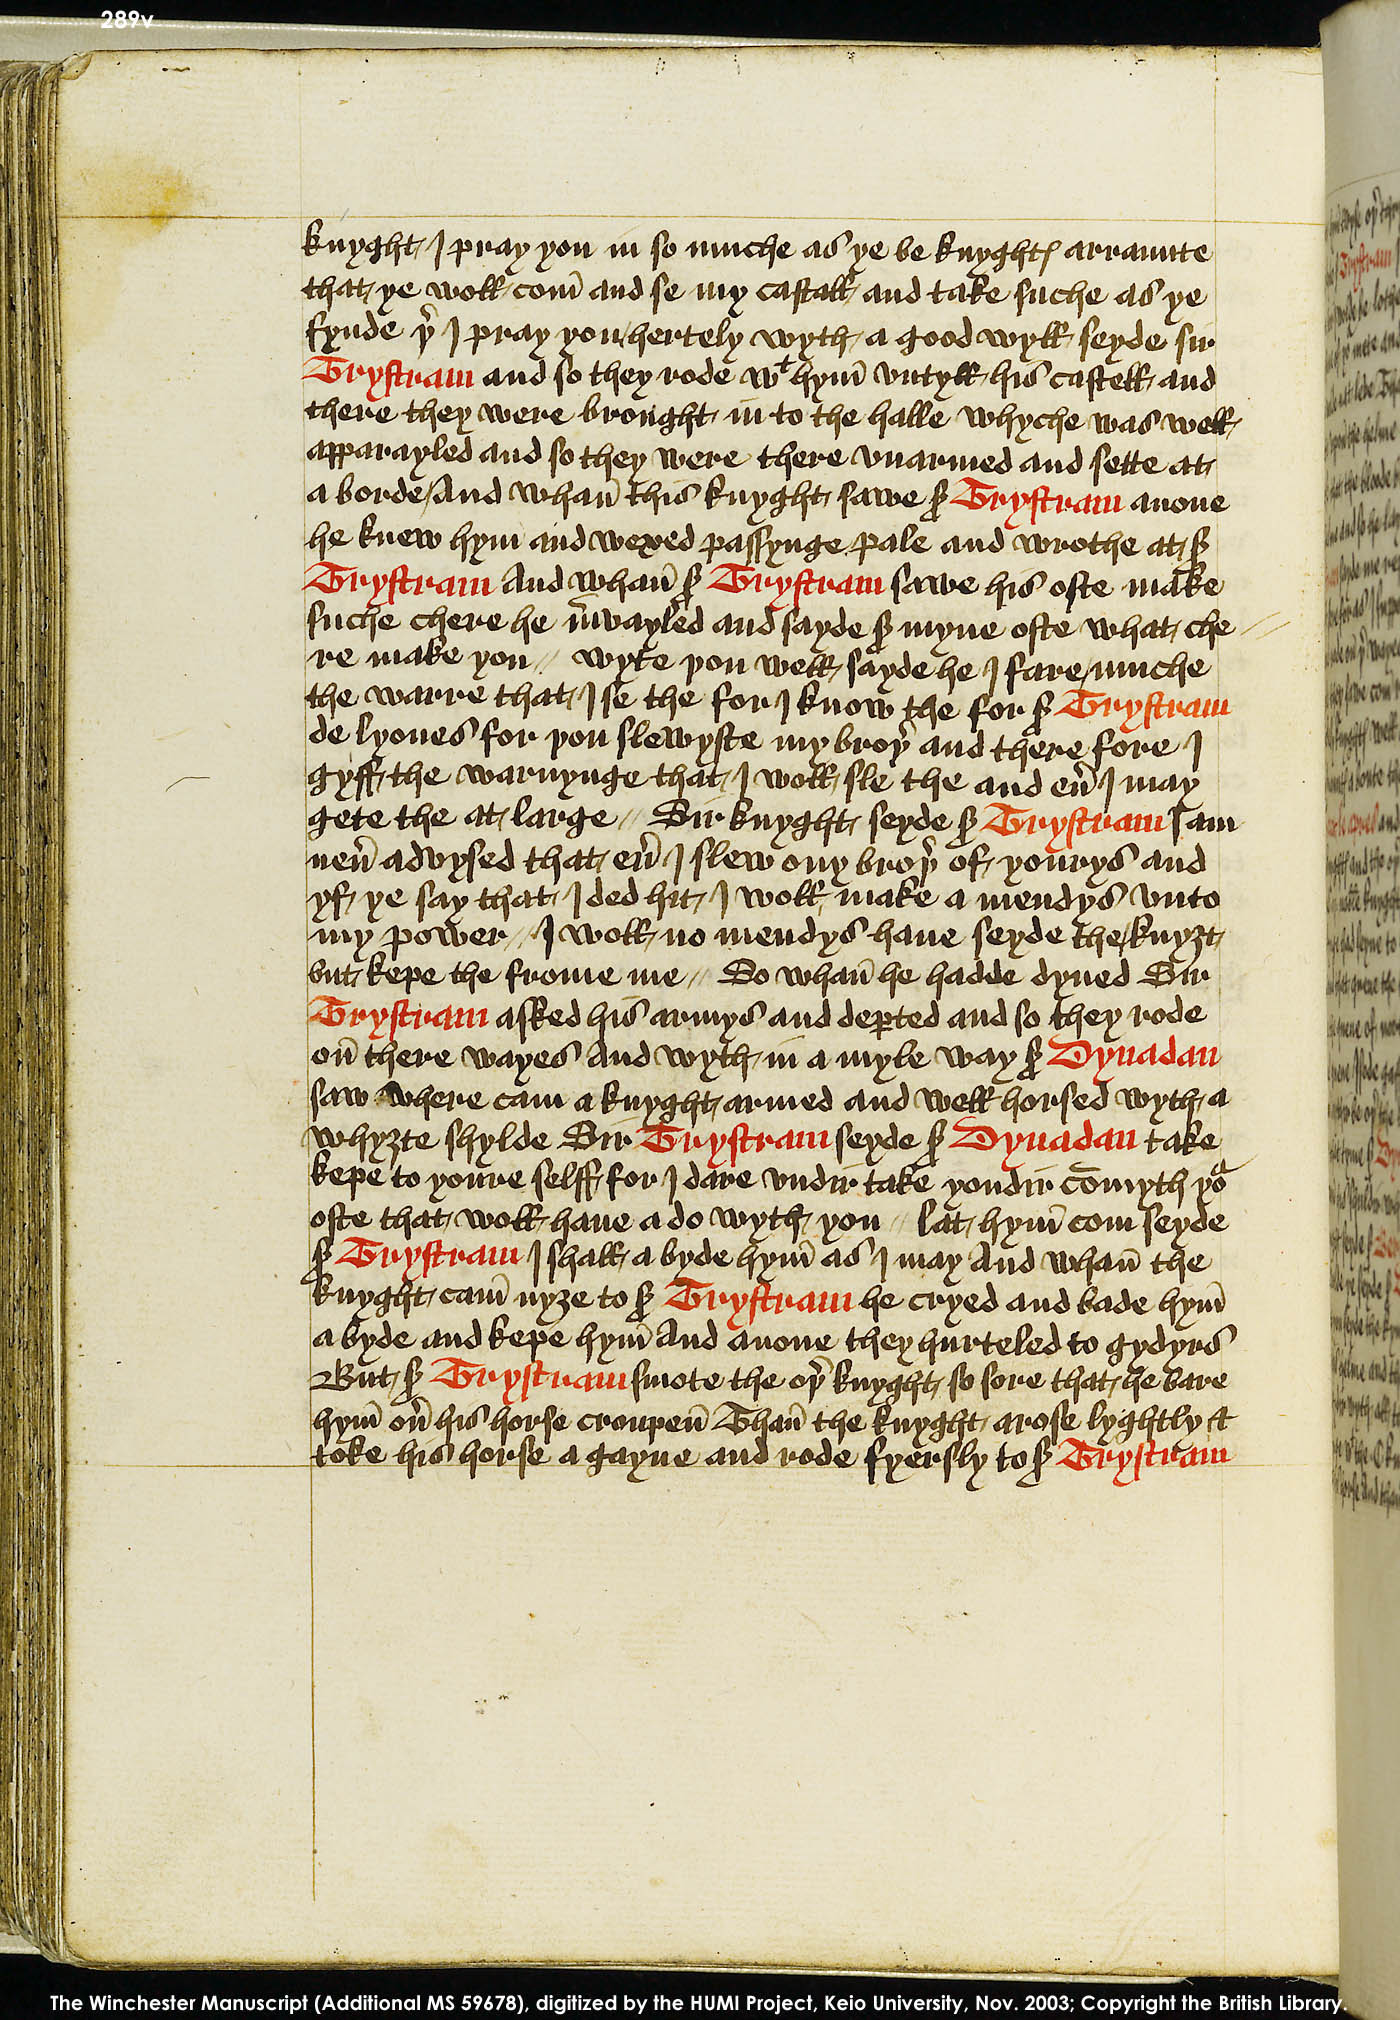 289v
knyght I pray you in so muche as ye be knyghtꝭ arraunte
that ye woll com̄ and se my castall and take suche as ye
fynde þ̉ I pray you hertely wyth a good wyll seyde sir
Trystram and so they rode wᵗ hym̄ vntyll his castell and
there they were brought in to the halle whyche was well
apparayled and so they were there vnarmed and sette at
a borde / And whan̄ this knyght sawe ẜ Trystram anone
he knew hym and wexed passynge pale and wrothe at ẜ
Trystram And whan̄ ẜ Trystram sawe his oste make
suche chere he m̉vayled and sayde ẜ myne oste what che
re make you // wyte you well sayde he I fare muche
the warre that I se the for I know the for ẜ Trystram
de lyones for þou slewyste my broþ̉ and there fore I
gyff the warnynge that I woll sle the and eủ I may
gete the at large // Sir knyght seyde ẜ Trystram I am
neủ advysed that eủ I slew ony broþ̉ of yourys and
yf ye say that I ded hit I woll make a mendys vnto
my power // I woll no mendys haue seyde the knyȝt
but kepe the frome me // So whan̄ he hadde dyned Sir
Trystram asked his armys and deꝑted and so they rode
on̄ there wayes And wyth in a myle way ẜ Dynadan
saw where cam a knyght armed and well horsed wyth a
whyȝte shylde Sir Trystram seyde ẜ Dynadan take
kepe to youre selff for I dare vndir take yondir cōmyth yoᵘ
oste that woll haue a do wyth you // lat hym̄ com seyde
ẜ Trystram I shall a byde hym̄ as I may And whan̄ the
knyght cam̄ nyȝe to ẜ Trystram he cryed and bade hym̄
a byde and kepe hym̄ And anone they hurteled to gydyrs
But ẜ Trystram smote the oþ̉ knyght so sore that he bare
hym̄ oủ his horse croupen̄ Than̄ the knyght arose lyghtly &
toke his horse a gayne and rode fyersly to ẜ Trystram
The Winchester Manuscript (Additional MS 59678), digitized by the HUMI Project, Keio University, Nov. 2003; Copyright the British Library.